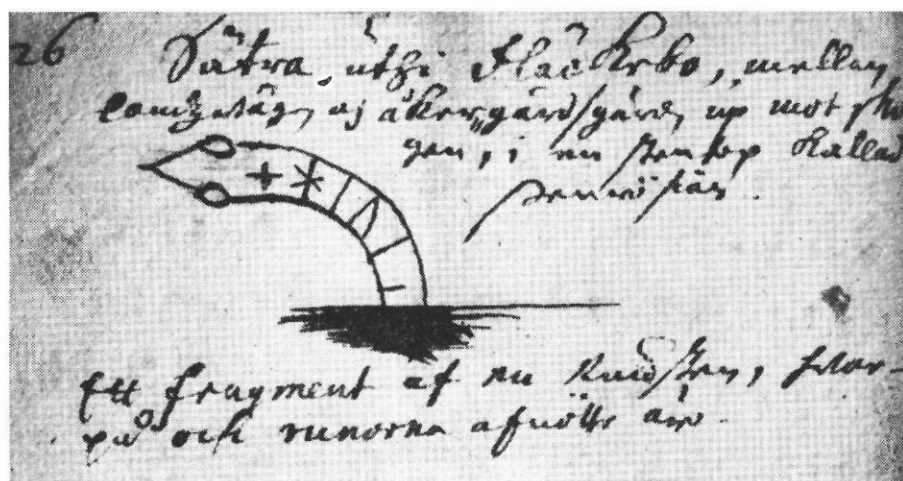 26 Sätra úthi Fläckebo, mellan
landzvägn oj åkergärdsgårdn up mot sko
gen, i en stentop kallad
Ett fragment af en Runsten, hvar-
på och runorna afnötte äro.